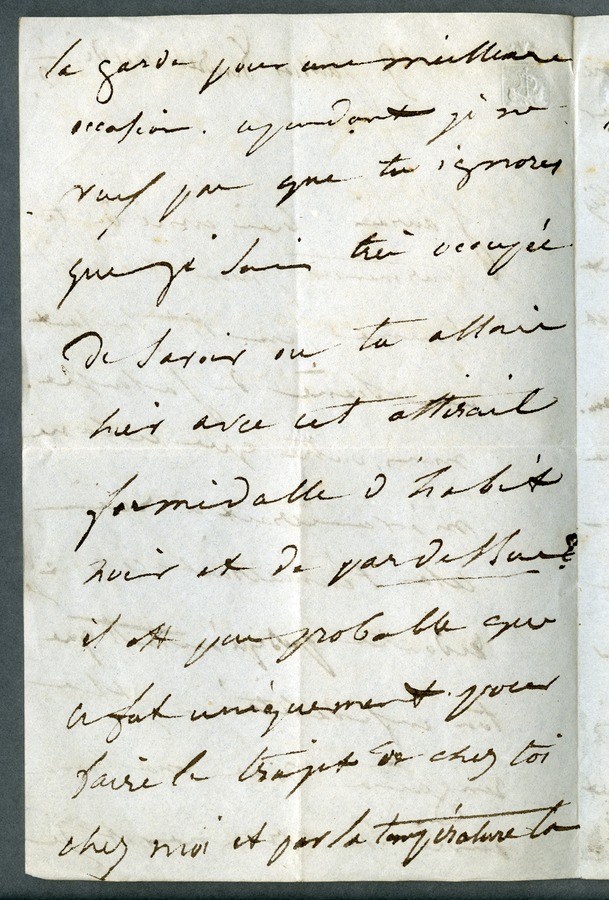 la garde pour une meilleure
occasion. cependant je ne
veux pas que tu ignores
que je suis très occupée
de savoir ou tu allais
hier avec cet attirail
formidable d'habit
noir et de pardessus?
il est peu probable que
ce fut uniquement pour
faire le trajet de chez toi
chez moi et par la température la